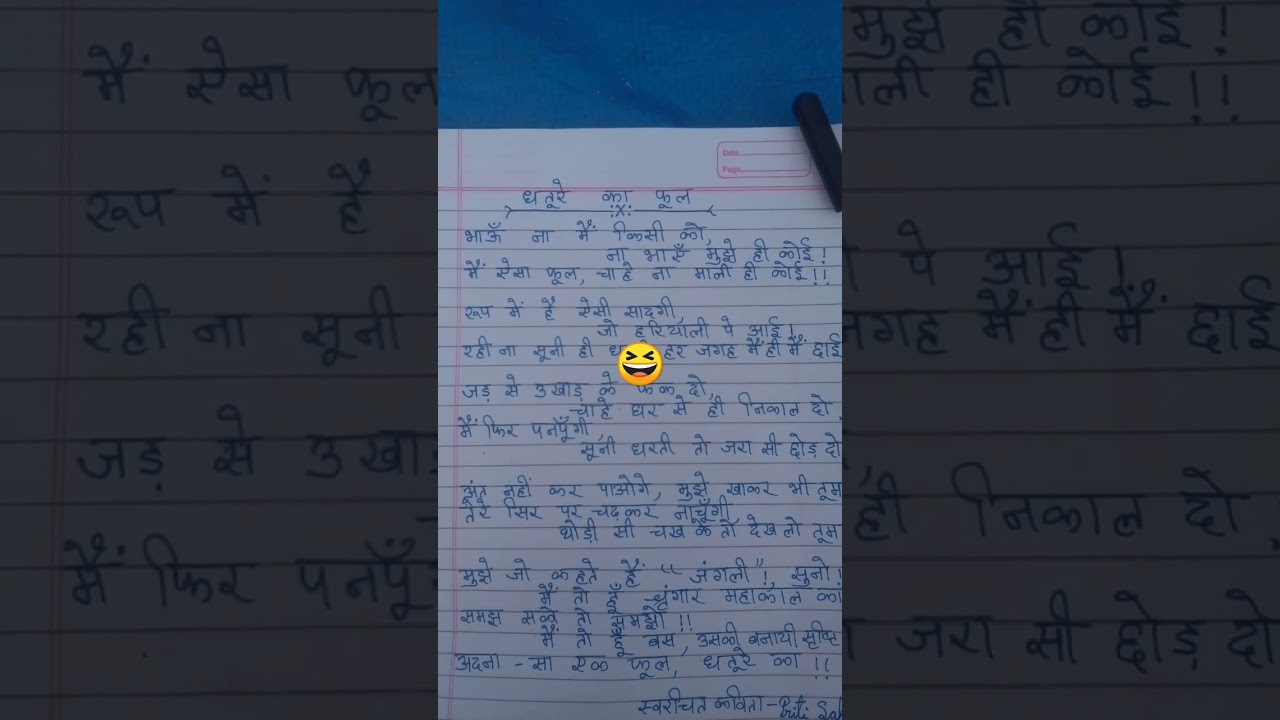 Date
Page
धतूरे का फूल
भाऊँ ना मैं किसी को,
ना भाएँ मुझे ही कोई!
मैं ऐसा फूल, चाहे ना माली ही कोई!!
रूप में है ऐसी सादगी,
जो हरियाली पे आई!
रही ना सूनी ही हर जगह मैं ही मैं छाई
जड़ से उखाड़ के फेंक दो,
चाहे घर से ही निकाल दो
मैं फिर पनपूँगी,
सूनी धरती तो जरा सी छोड़ दो
अंत नहीं कर पाओगे, मुझे खाकर भी तूम
तेरे सिर पर चढ़कर नाचूँगी
थोड़ी सी चख के तो देख लो तूम
मुझे जो कहते हैं "जंगली"!, सुनो!
मैं तो हूँ श्रृंगार महाकाल का
समझ सको तो समझो!!
मैं तो हूँ बस, उसकी बनायी सृष्टि
अदना - सा एक फूल, धतूरे का !!
स्वरचित कविता - Priti